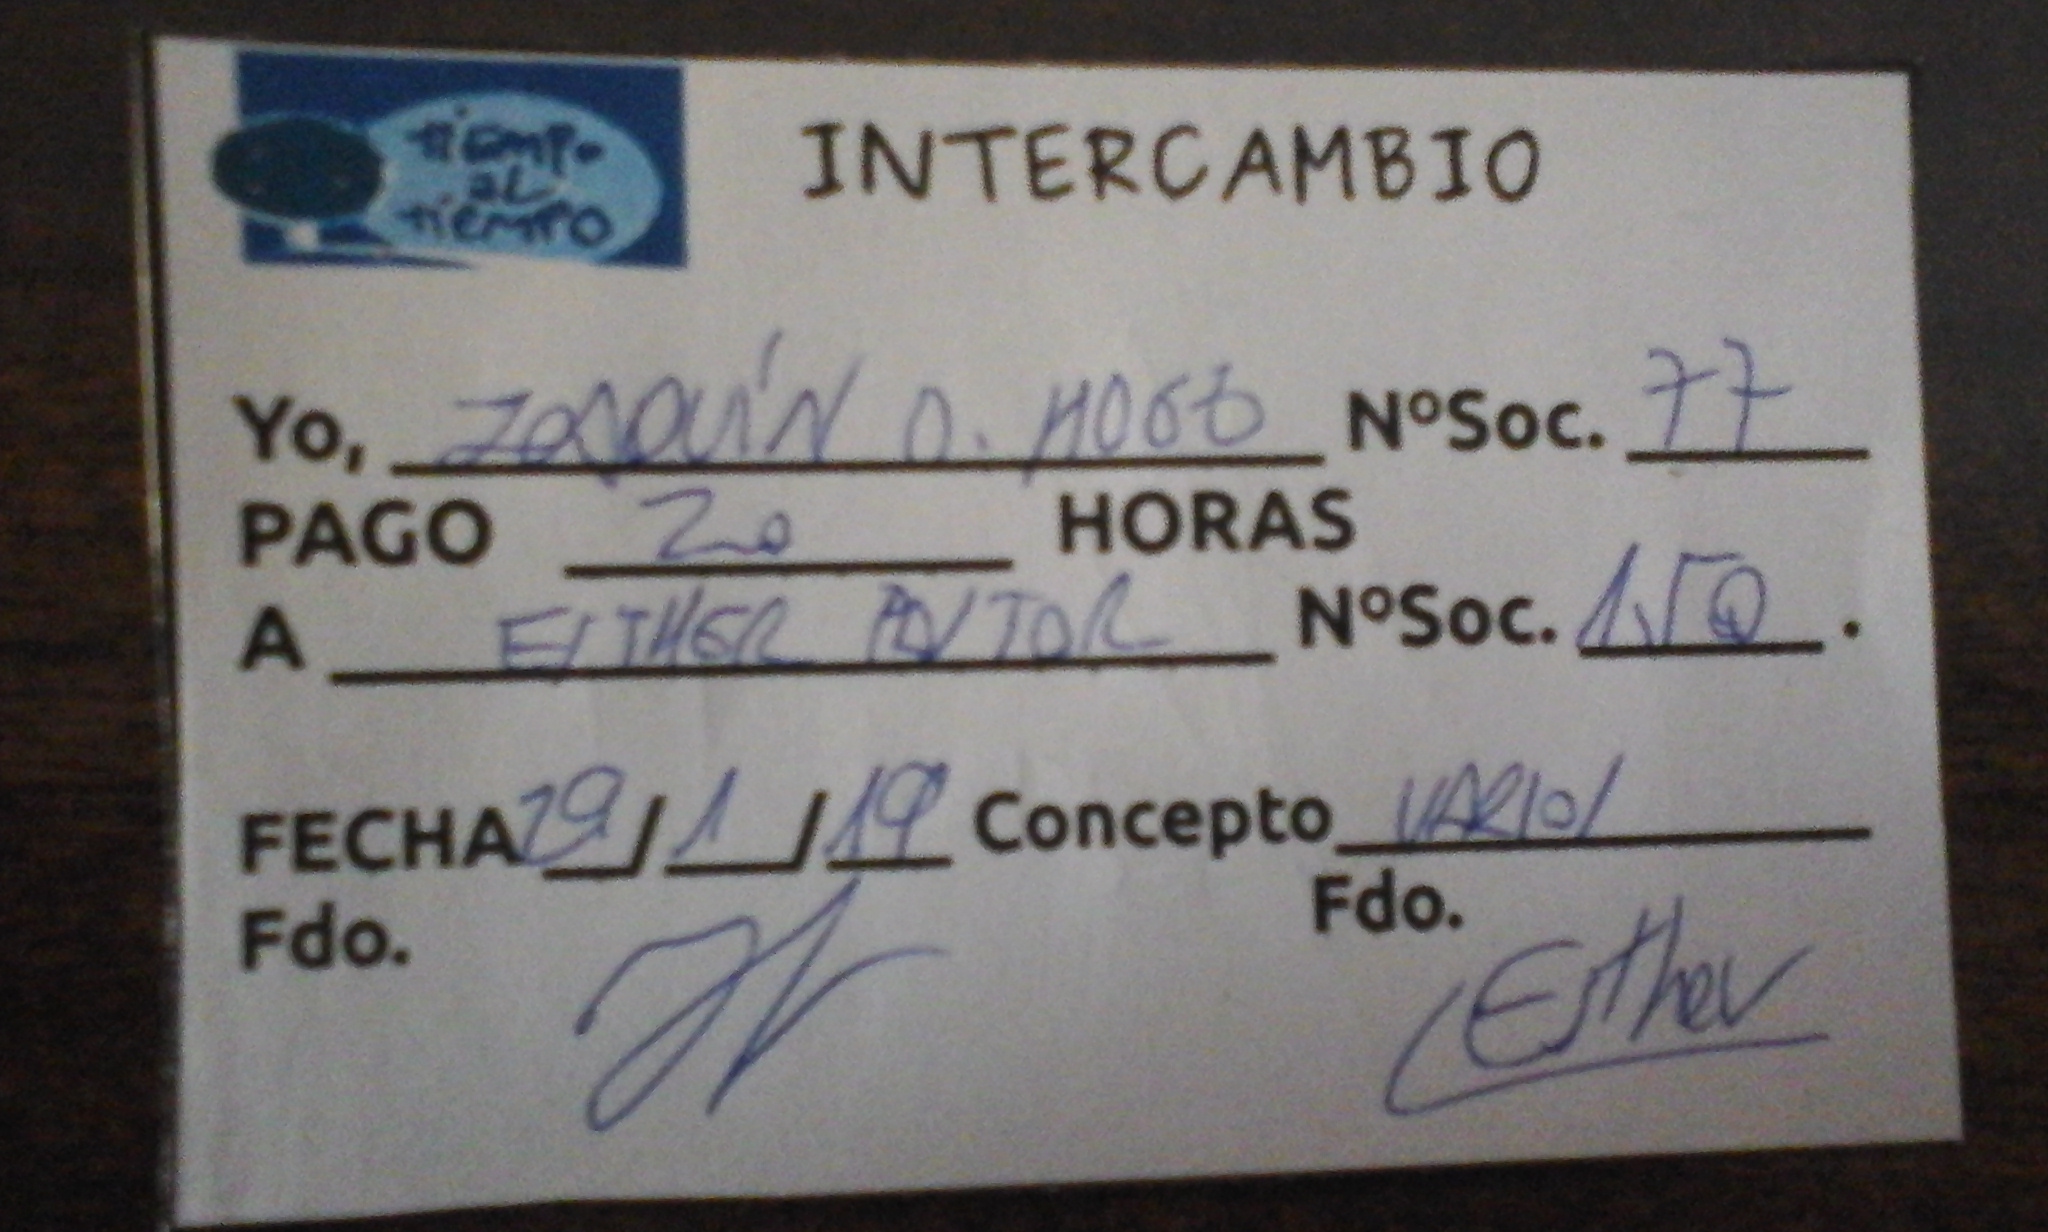 tiempo
al
tiempo
INTERCAMBIO
Yo, JOAQUÍN D. MOGO NºSoc. 77
PAGO 20 HORAS
A ESTHER PASTOR NºSoc. 150.
FECHA 29/1/19 Concepto VARIOS
Fdo. Fdo.
Esther